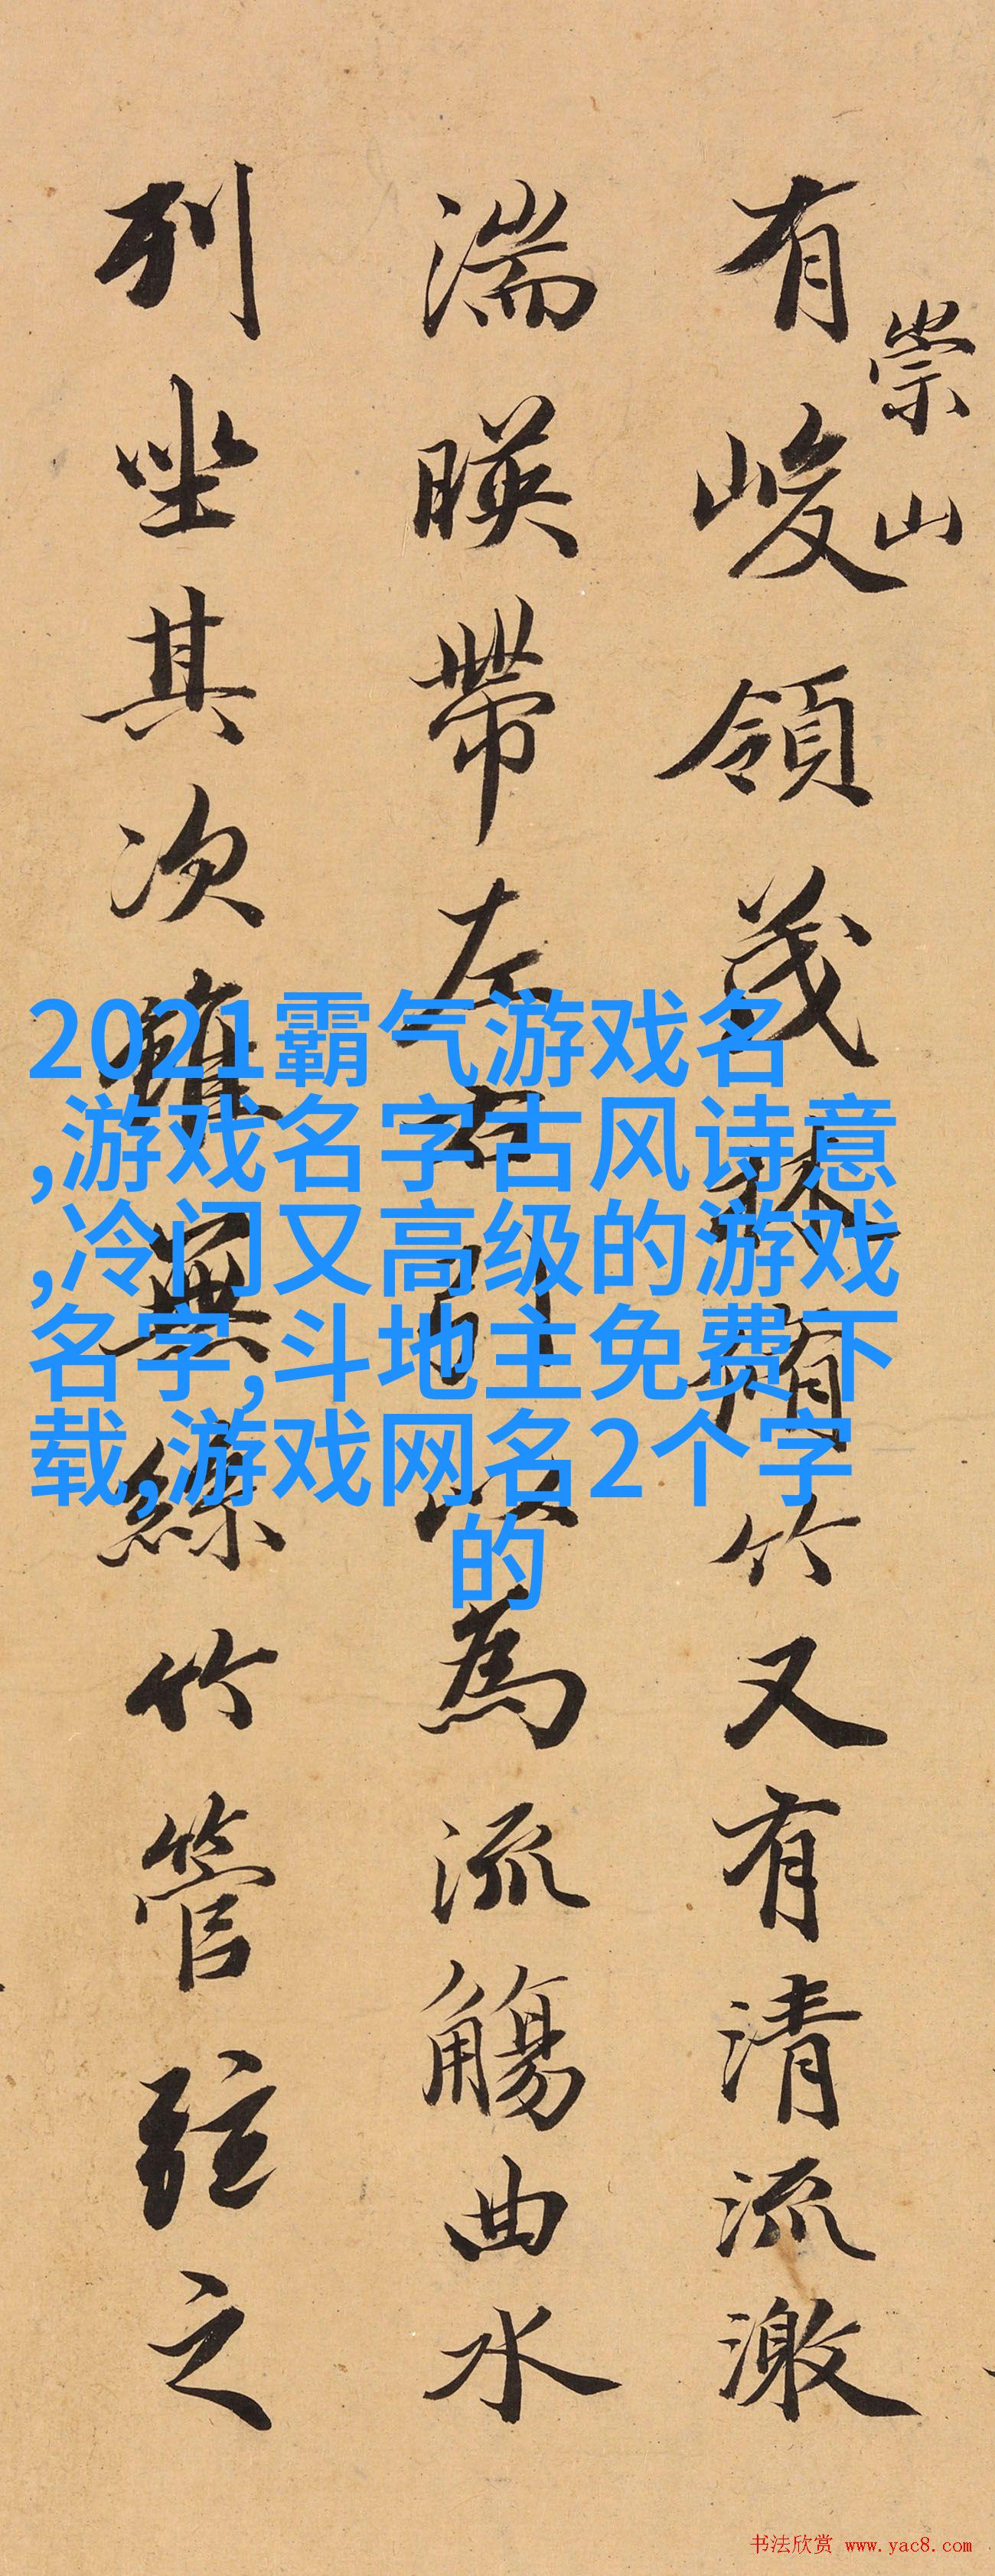 崇山
有峻領茂林脩竹又有清流激
湍暎帶左右引以為流觴曲水
列坐其次雖無絲竹管弦之
2021霸气游戏名
,游戏名字古风诗意
,冷门又高级的游戏
名字,斗地主免费下
载,游戏网名2个字
的
书法欣赏 www.yac8.com